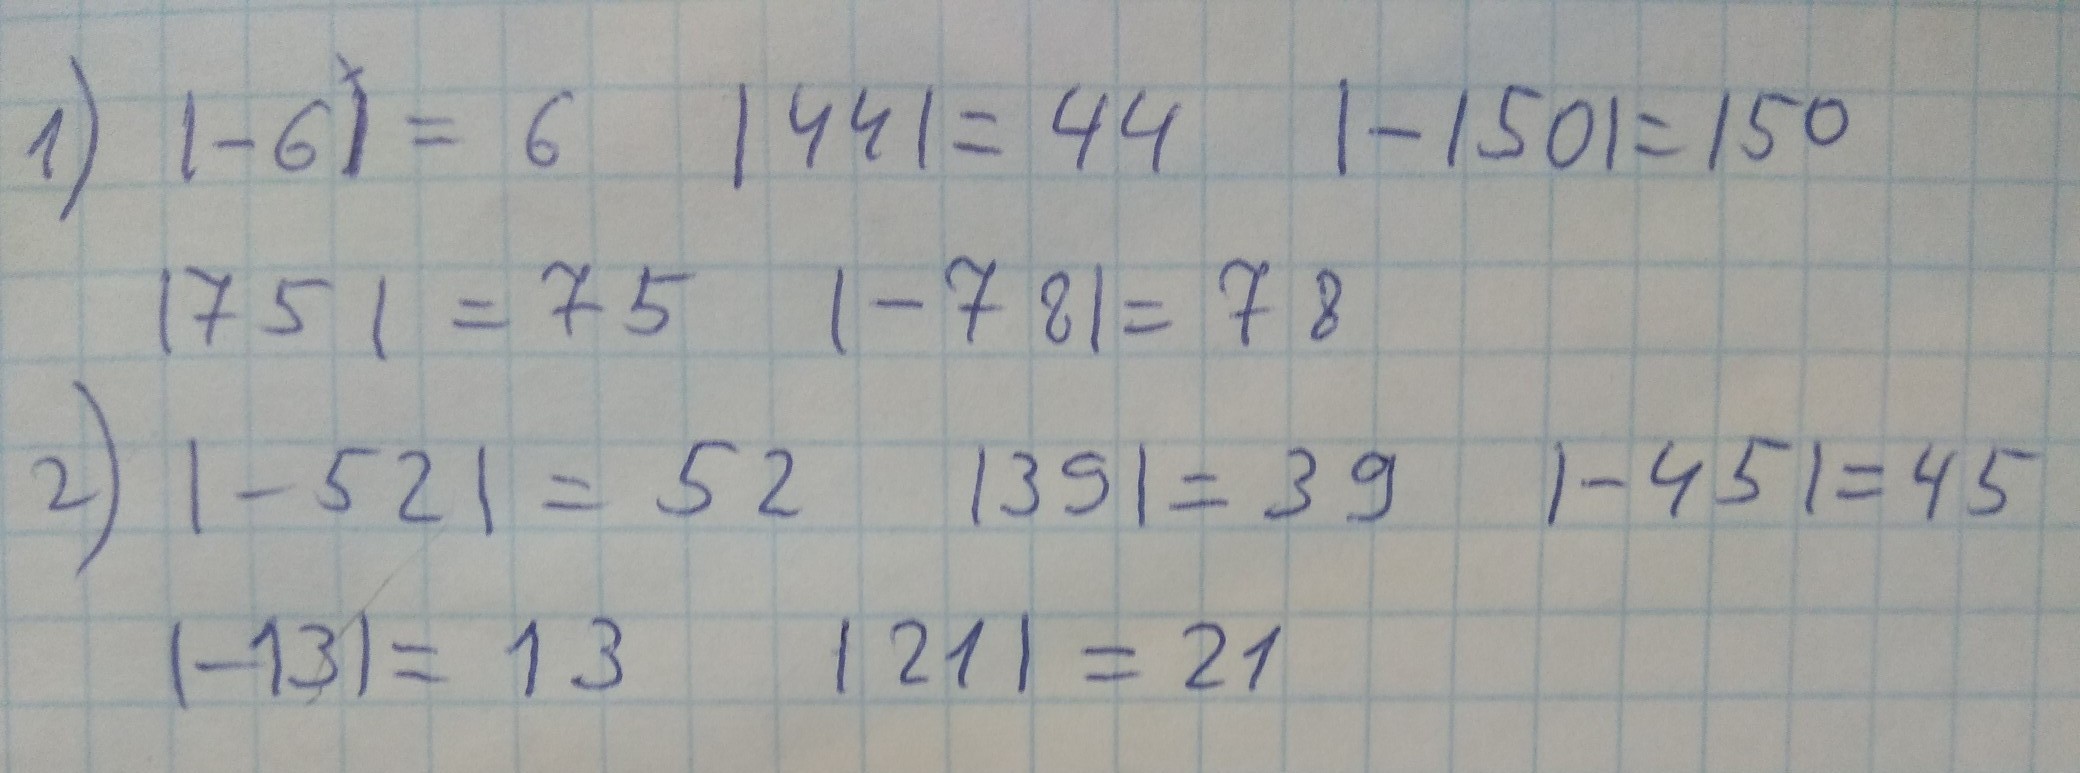 1) |-6| = 6 |44| = 44 |-150| = 150
|75| = 75 |-78| = 78
2) |-52| = 52 |39| = 39 |-45| = 45
|-13| = 13 |21| = 21